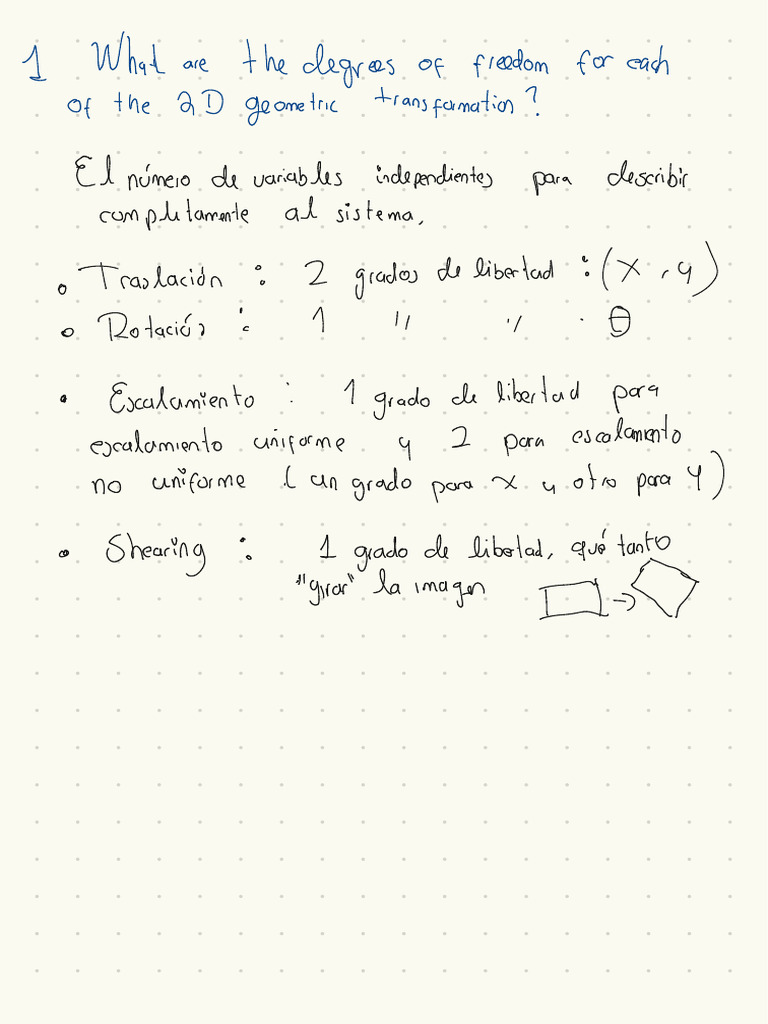 1 What are the degrees of freedom for each
of the 2D geometric transformation?
El número de variables independientes para describir
completamente al sistema,
Traslación : 2 grados de libertad : (x, y)
Rotación : 1 " " . θ
Escalamiento : 1 grado de libertad para
escalamiento uniforme y 2 para escalamento
no uniforme (un grado para x y otro para y)
Shearing : 1 grado de libertad, qué tanto
"girar" la imagen